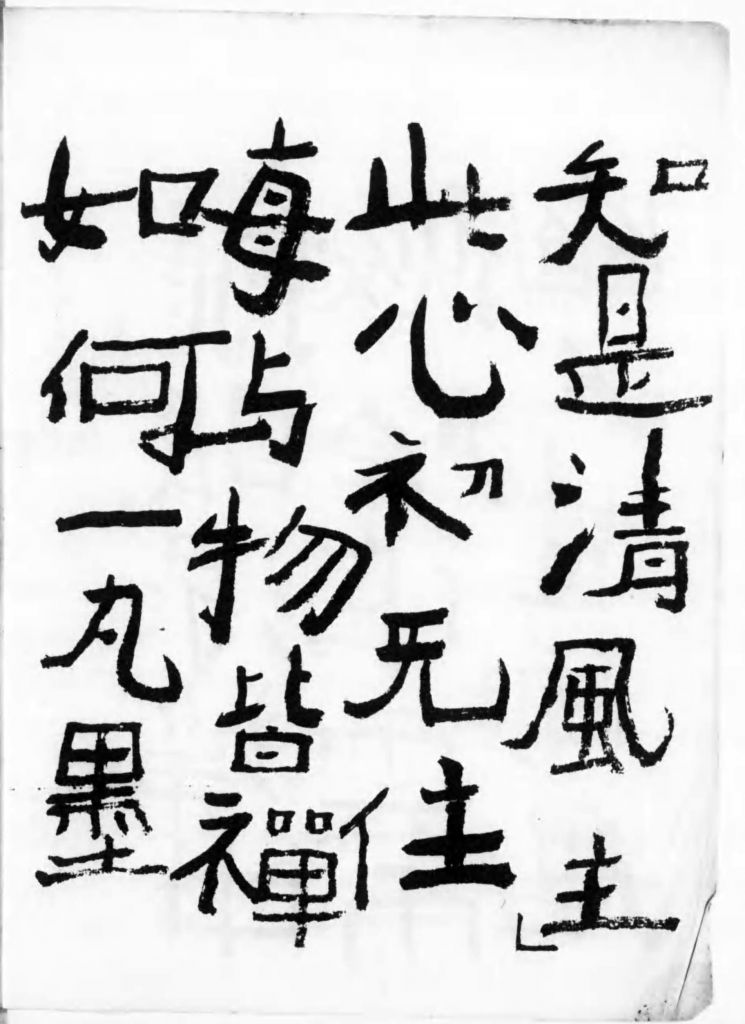 知是清風主」
此心初无住
每与物皆禪
如何一丸墨